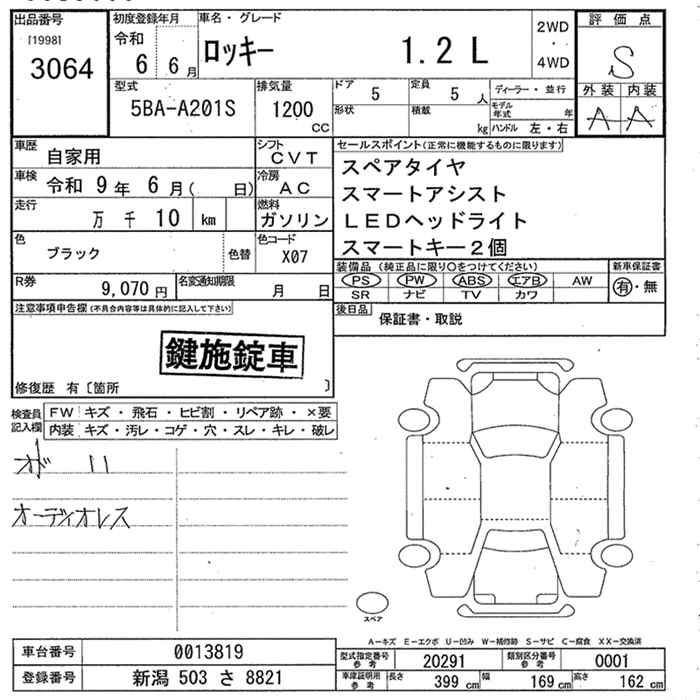 出品番号 初度登録年月 車名・グレード 評価点
[1998] 令和 ロッキー 1.2 L 2WD ・ 4WD S
3064 6 6月 外装 内装
型式 排気量 ドア 5 定員 5人 ディーラー・並行 A A
5BA-A201S 1200cc 形状 積載 kg モデル年式 年 ハンドル 左・右
車歴 自家用 シフト CVT セールスポイント(正常に機能するものに限ります)
車検 令和 9年 6月( 日) 冷房 AC スペアタイヤ
スマートアシスト
走行 万 千 10 km 燃料 ガソリン LEDヘッドライト
色 ブラック 色替 色コード X07 スマートキー2個
R券 9,070円 名変通知期限 月 日 装備品(純正品に限り○をつけてください) 新車保証書
PS PW ABS エアB AW 有・無
SR ナビ TV カワ
注意事項申告欄(不具合内容等は具体的に記入して下さい) 後日品 保証書・取説
鍵施錠車
修復歴 有〔箇所 〕
検査員記入欄 FW キズ・飛石・ヒビ割・リペア跡・×要
内装 キズ・汚レ・コゲ・穴・スレ・キレ・破レ
オーディオレス
スペア
A-キズ E-エクボ U-凹み W-補修跡 S-サビ C-腐食 XX-交換済
車台番号 0013819 型式指定番号 参考 20291 類別区分番号 参考 0001
登録番号 新潟 503 さ 8821 車庫証明用 参考 長さ 399cm 幅 169cm 高さ 162cm